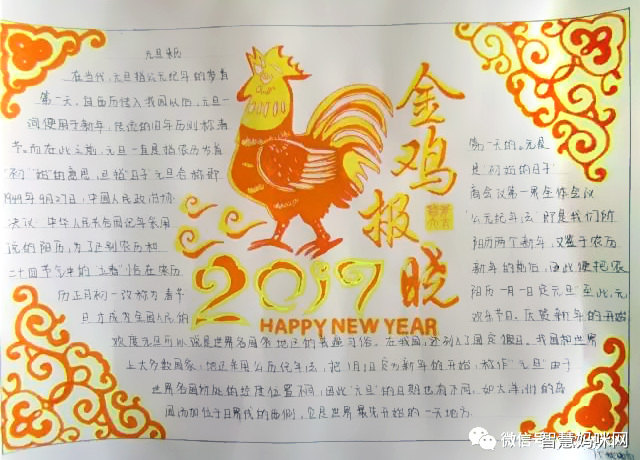 元旦来历
在当代,元旦指公元纪年的岁首
第一天,自西历传入我国以后,元旦一
词便用于新年,传统的旧年历则称春
节。而在此之前,元旦一直是指农历岁首
第一天的。元是
“初”“始”的意思,旦指“日子”元旦合称即
是“初始的日子”
1949年9月27日,中国人民政治协
商会议第一界全体会议
决议“中华人民共和国纪年采用
“公元纪年法”即是我们所
说的阳历,为了区别农历和
阳历两个新年,又鉴于农历
二十四节气中的“立春”恰在农历
新年的前后,因此便把农
历正月初一改称为春节
阳历一月一日定为“元旦”至此,元
旦才成为全国人民的
欢乐节日。
欢度元旦可以说是世界各国
在我国,还列入了国定假日。我国和世界
上大多数国家、地区采用公历纪年法,把1月1日定为新年的开始,称作“元旦”由于
世界各国所处的经度位置不同,因此“元旦”的日期也有不同,如大洋洲的
国
加位于日界线的西侧,它是世界最先开始的一天地方
金鸡报晓
2017
HAPPY NEW YEAR
微信号
智慧妈咪网